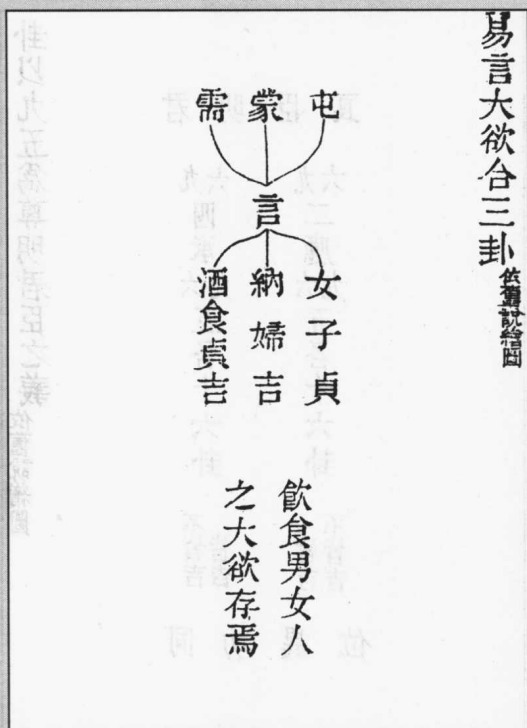 易言大欲合三卦
依舊說繪圖
屯
蒙
需
言
女子貞
納婦吉
酒食貞吉
飲食男女人
之大欲存焉